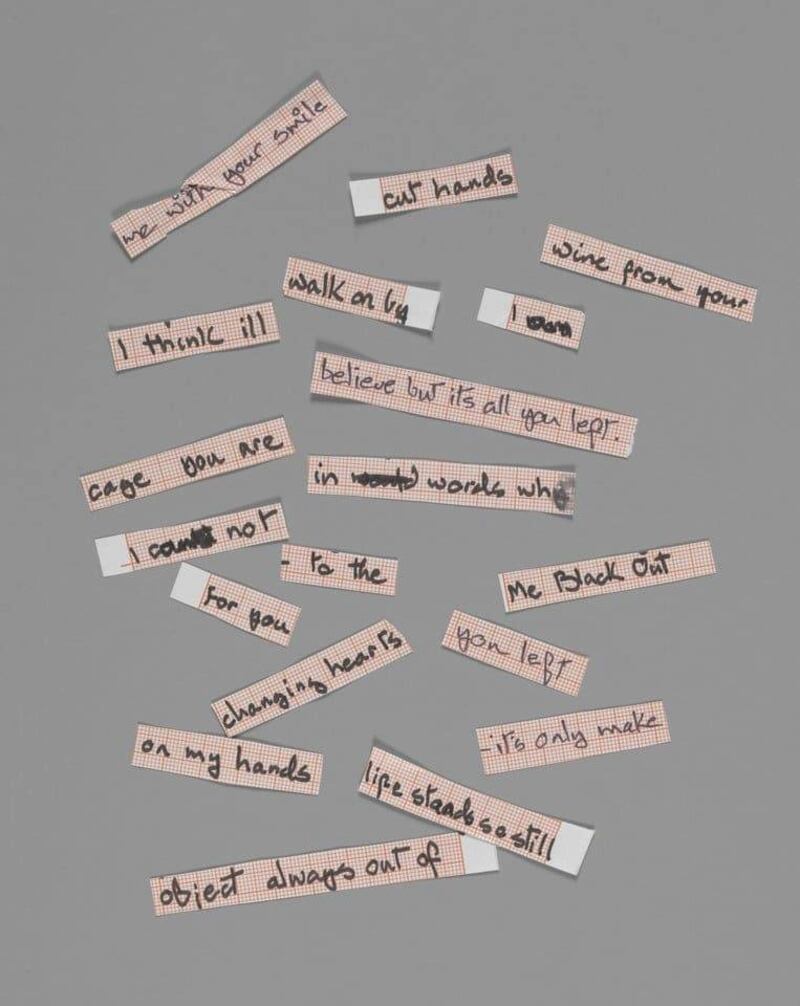 me with your smile
cut hands
wine from your
walk on by
I
I think ill
believe but its all you left.
cage you are
in words
I not
- to the
Me Black Out
for you
changing hearts
you left
on my hands
- it's only make
life stands so still
object always out of